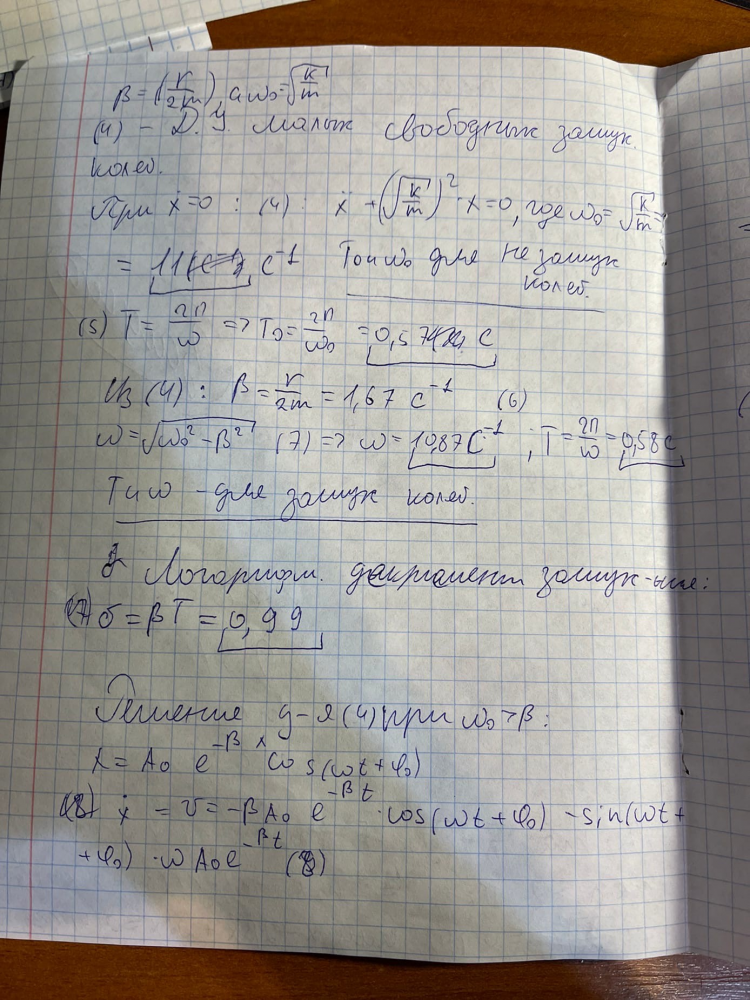 β = (r/2m), а ω₀ = √(k/m)
(4) – Д.У. малых свободных затух.
колеб.
При ẋ=0 : (4) : ẍ + (√(k/m))² · x = 0, где ω₀ = √(k/m) =
= 11 с⁻¹ T₀ и ω₀ для не затух
колеб.
(5) T = 2π/ω => T₀ = 2π/ω₀ = 0,57 с
Из (4) : β = r/2m = 1,67 с⁻¹ (6)
ω = √(ω₀² – β²) (7) => ω = 10,87 с⁻¹ ; T = 2π/ω = 0,58 с
T и ω – для затух колеб.
Логарифм. декремент затух-ния:
(7) δ = βT = 0,99
Решение у-я (4) при ω₀ > β :
x = A₀ e^(–β x) cos(ωt + φ₀)
(8) ẋ = v = –βA₀ e^(–βt) · cos(ωt + φ₀) – sin(ωt +
+ φ₀) · ωA₀e^(–βt) (8)